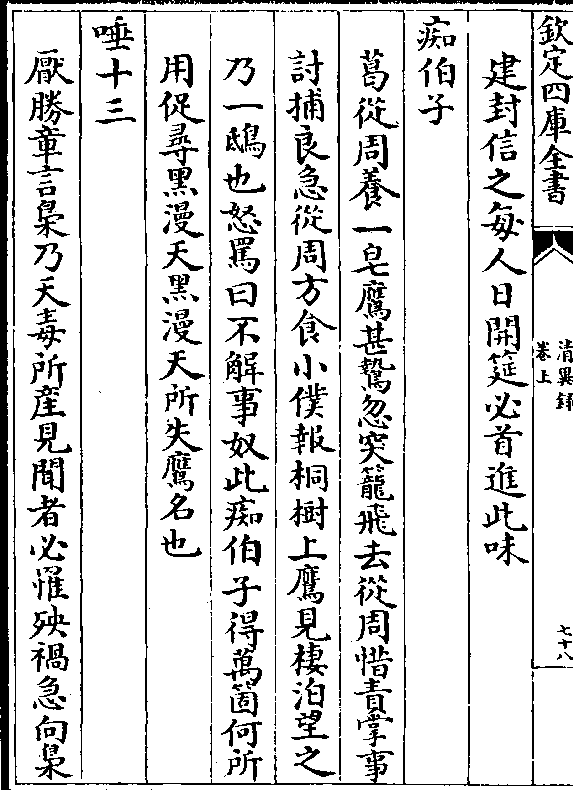 欽定四庫全書
清異録
卷上
七十八
建封信之每人日開筵必首進此味
痴伯子
葛從周養一皂鷹甚鷙忽突籠飛去從周惜責掌事
討捕良急從周方食小僕報桐樹上鷹見棲泊望之
乃一鴟也怒罵曰不解事奴此痴伯子得萬箇何所
用促尋黑漫天黑漫天所失鷹名也
唾十三
厭勝章言梟乃天毒所產見聞者必罹殃禍急向梟